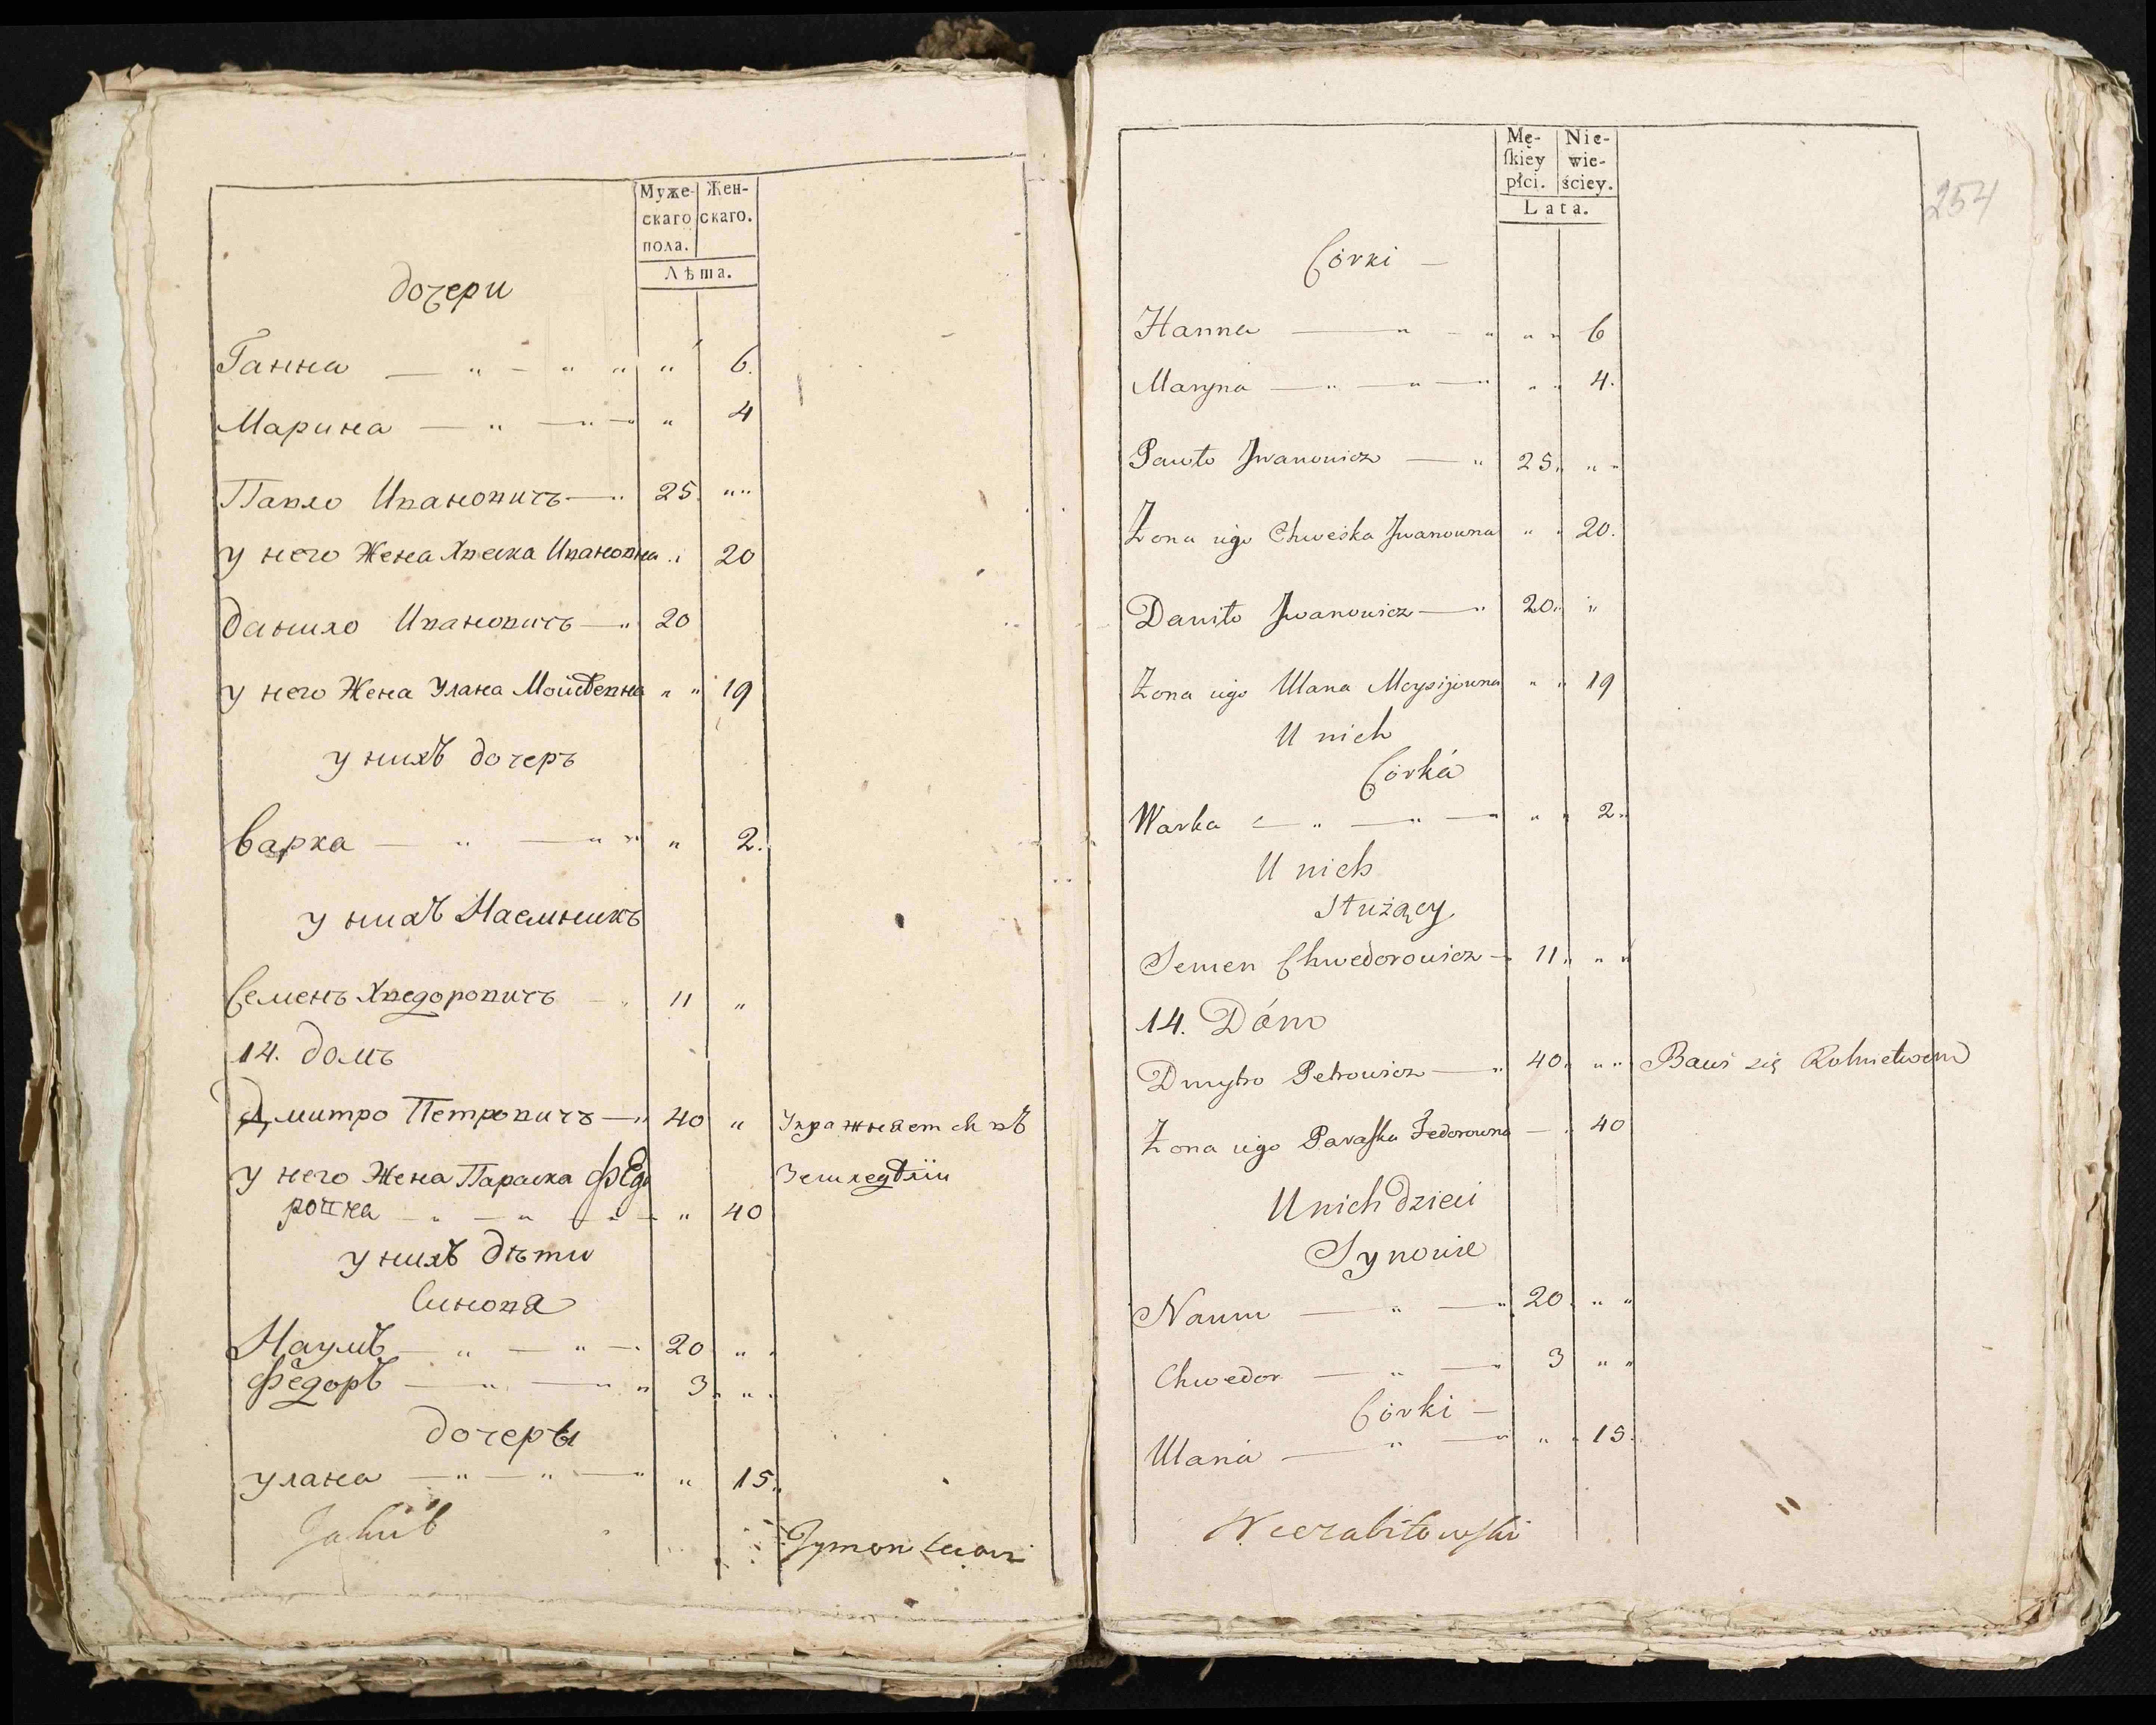 Муже-
скаго
пола.
Жен-
скаго.
Лѣта.
дочери
Ганна — „ — „ „ „ 6.
Марина — „ — „ — „ 4
Павло Ивановичъ — „ 25 „ „
у него Жена Хвеска Ивановна „ 20
данило Ивановичъ — „ 20
у него Жена Улана Мойсѣевна „ „ 19
у нихъ дочеръ
варка — „ — „ „ „ 2.
у нихъ Наемникъ
Семенъ Хведоровичъ — „ 11 „
14. домъ
Дмитро Петровичъ — „ 40 „ Упражняется въ
у него Жена Параска Федо Земледѣліи
ровна — „ — „ — „ — „ 40
у нихъ дѣти
Синовя
Наумъ — „ — „ — 20 „ „
Федоръ — „ — „ „ 3 „ „
дочеры
улана — „ — „ — „ „ 15 „
Jakub Szymon
Mę-
ſkiey
płci.
Nie-
wie-
ściey.
Lata.
254
Córki —
Hanna — „ — „ „ „ 6
Maryna — „ — „ — „ „ „ 4.
Pawło Jwanowicz — „ 25 „ „ „
Żona iego Chweśka Jwanowna „ „ 20.
Daniło Jwanowicz — „ 20 „ „
Żona iego Ulana Moysijowna „ „ 19
U nich
Córka
Warka — „ — „ — „ „ „ 2 „
U nich
Służący
Semen Chwedorowicz — 11 „ „ „
14. Dóm
Dmytro Petrowicz — „ 40 „ „ „ Bawi się Rolnictwem
Żona iego Paraſka Fedorowna — „ 40
U nich dzieci
Synowie
Naum — „ — „ 20 „ „ „
Chwedor — „ — „ 3 „ „
Córki —
Ulana — „ — „ „ „ 15.
Nierabitowſki